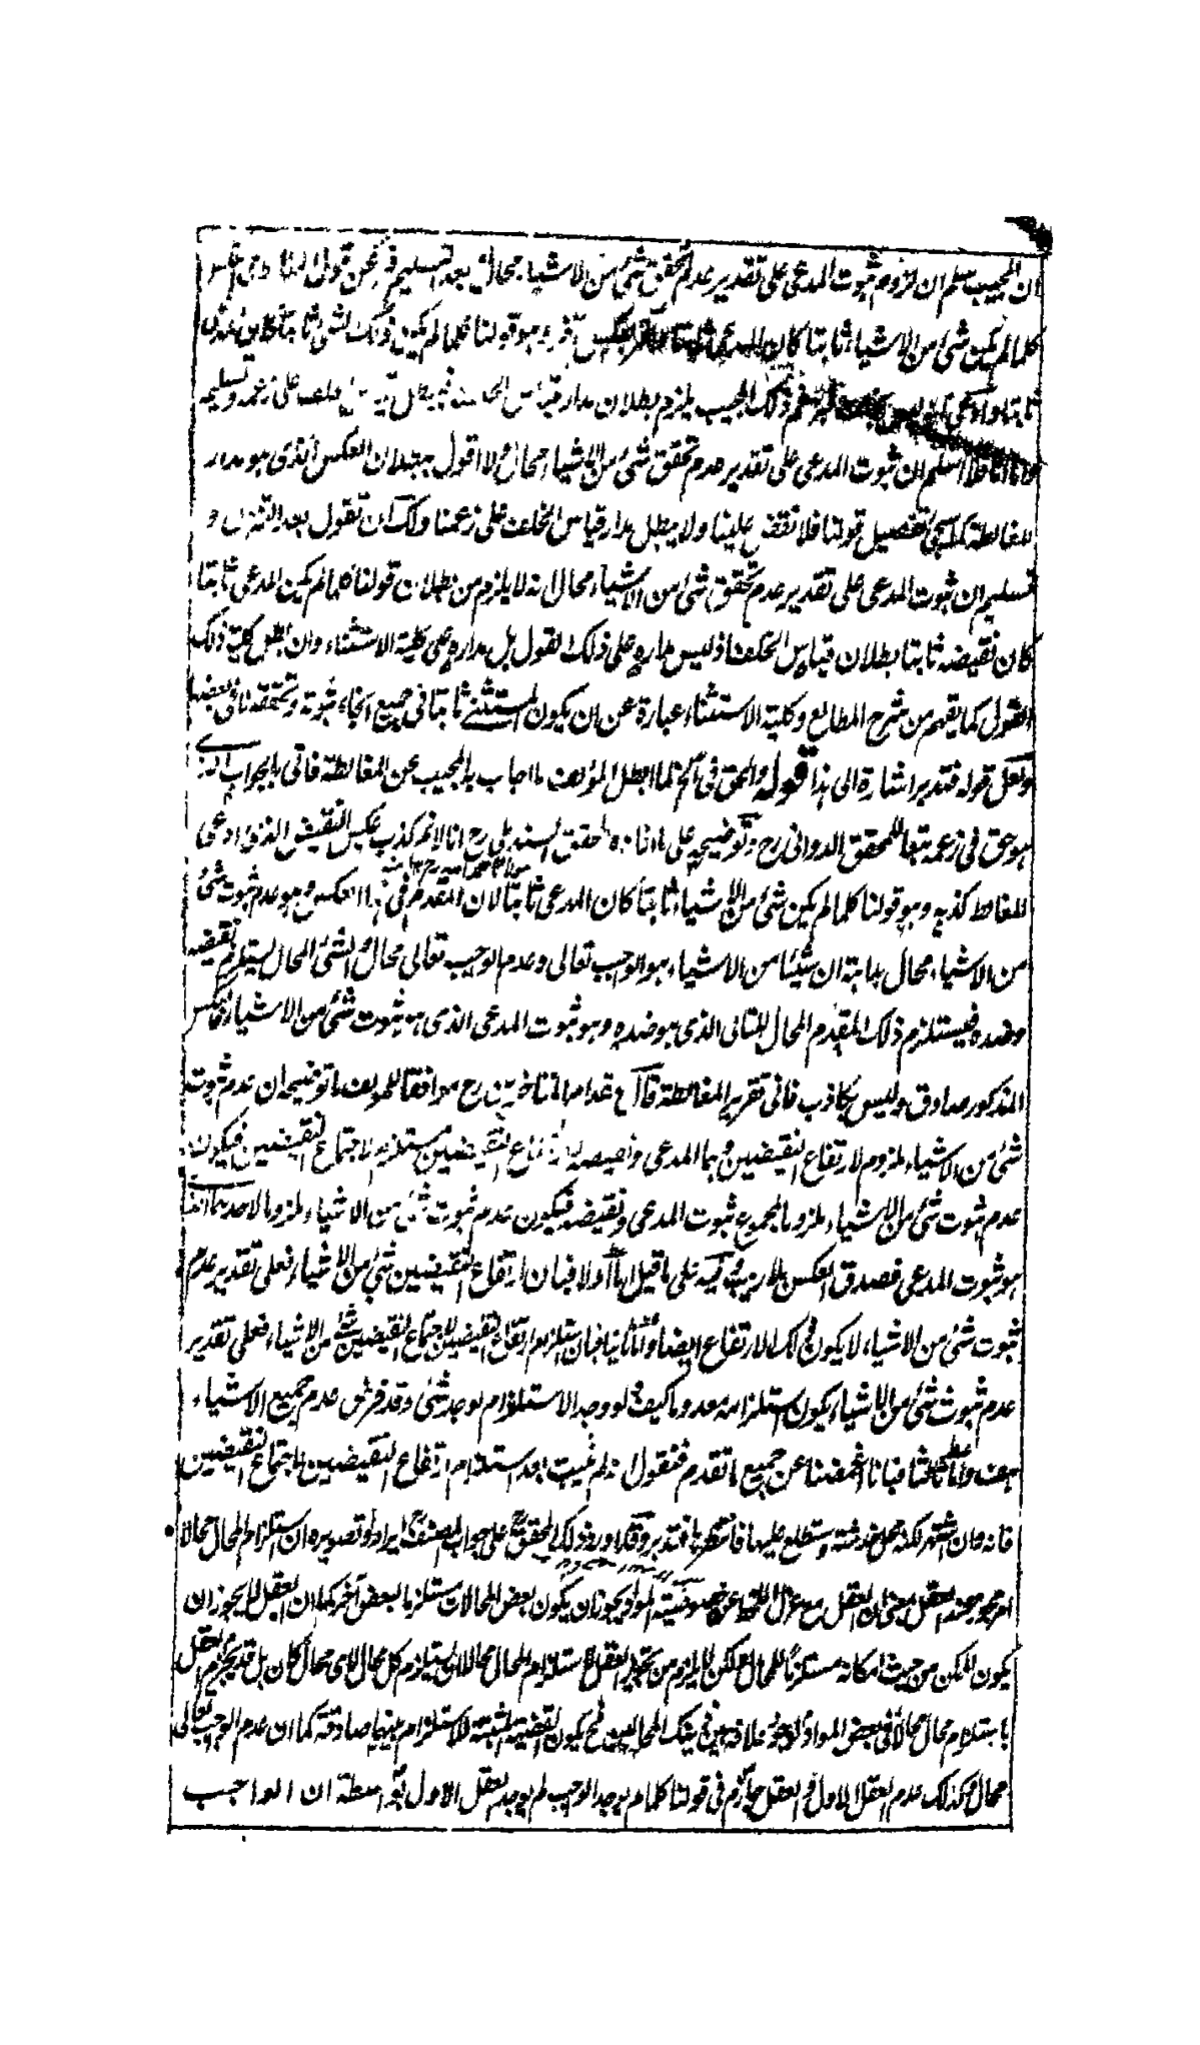 ان المجيب سلم ان لزوم ثبوت المدعى على تقدير عدم تحقق شئ من الاشياء محال بعد التسليم فنحن نقول
كلما لم يكن شئ من الاشياء ثابتا كان المدعى ثابتا وهو قولنا كلما لم يكن ذلك الشئ ثابتا كان المدعى
ثابتا وادعى ذلك المجيب يلزم بطلان مدار قياس الخلف على زعمه وتسليمه
وانا اسلم ان ثبوت المدعى على تقدير عدم تحقق شئ من الاشياء محال ولا اقول ببطلان العكس الذى هو مدار
المغالطة كما سيجئ تفصيل قولنا فلا نقض علينا ولا يبطل مدار قياس الخلف على زعمنا ولك ان تقول بعد التنزل و
تسليم ان ثبوت المدعى على تقدير عدم تحقق شئ من الاشياء محال انه لا يلزم من بطلان قولنا كلما لم يكن المدعى ثابتا
كان نقيضه ثابتا بطلان قياس الخلف اذ ليس مداره على ذلك القول بل مداره على كلية الاستثناء وان بطل كلية ذلك
القول كما يفهم من شرح المطالع وكلية الاستثناء عبارة عن ان يكون المستثنى ثابتا فى جميع انحاء ثبوته وتحققه لا فى بعضها
ولعل قوله فتدبر اشارة الى هذا قوله والحق فى الخ لما ابطل المؤلف ما اجاب به المجيب عن المغالطة فاتى بالجواب الذى
هو حق فى زعمه تبعا للمحقق الدوانى رح وتوضيحه على ما افاده المحقق السنديلى رح انا لا نم كذب عكس النقيض الذى ادعى
المغالط كذبه وهو قولنا كلما لم يكن شئ من الاشياء ثابتا كان المدعى ثابتا لان المقدم فى هذا العكس وهو عدم ثبوت شئ
من الاشياء محال بداهة ان شيئا من الاشياء هو الواجب تعالى وعدم الواجب تعالى محال والشئ المحال يستلزم نقيضه
وضده فيستلزم ذلك المقدم المحال للتالى الذى هو ضده وهو ثبوت المدعى الذى هو ثبوت شئ من الاشياء فالعكس
المذكور صادق وليس بكاذب فانى تقرير المغالطة قال المتاخرين رح موافقا للمؤلف ما توضيحه ان عدم ثبوت
شئ من الاشياء ملزوم لارتفاع النقيضين وهما المدعى ونقيضه وارتفاع النقيضين مستلزم لاجتماع النقيضين فيكون
عدم ثبوت شئ من الاشياء ملزوما لمجموع ثبوت المدعى ونقيضه فيكون عدم ثبوت شئ من الاشياء ملزوما لاحدهما ايضا
هو ثبوت المدعى فصدق العكس بلا ريب وفيه على ما قيل اما اولا فبان ارتفاع النقيضين شئ من الاشياء فعلى تقدير عدم
ثبوت شئ من الاشياء لا يكون ذلك الارتفاع ايضا واما ثانيا فبان استلزام ارتفاع النقيضين لاجتماع النقيضين شئ من الاشياء فعلى تقدير
عدم ثبوت شئ من الاشياء يكون استلزامه معدوما كيف لو وجد الاستلزام لوجد شئ وقد فرض عدم جميع الاشياء
هف واما ثالثا فبانا اغمضنا عن جميع ما تقدم فنقول انه لم يثبت بعد استلزام ارتفاع النقيضين لاجتماع النقيضين
فانه وان اشتهر لكنه محل خدشة وستطلع عليها فانتظرها فتدبر وتفكر واورد ذلك المحقق على جواب المصنف ايرادا وتصويره ان استلزام المحال محالا
امر يجوزه العقل بمعنى ان العقل مع عزل اللحاظ عن خصوصية المواد يجوز ان يكون بعض المحالات مستلزما لبعض آخر كما ان العقل لا يجوز ان
يكون الممكن من حيث امكانه مستلزما للمحال لكن لا يلزم من تجويز العقل لاستلزام المحال محالا ان يستلزم كل محال لاى محال كان بل قد يجزم العقل
باستلزام محال محالا فى بعض المواد لوجود علاقة بين ذينك المحالين فح يكون القضية المثبتة للاستلزام بينهما صادقة كما ان عدم الواجب تعالى
محال وكذلك عدم العقل الاول والعقل جازم فى قولنا كلما لم يوجد الواجب لم يوجد العقل الاول بواسطة ان الواجب